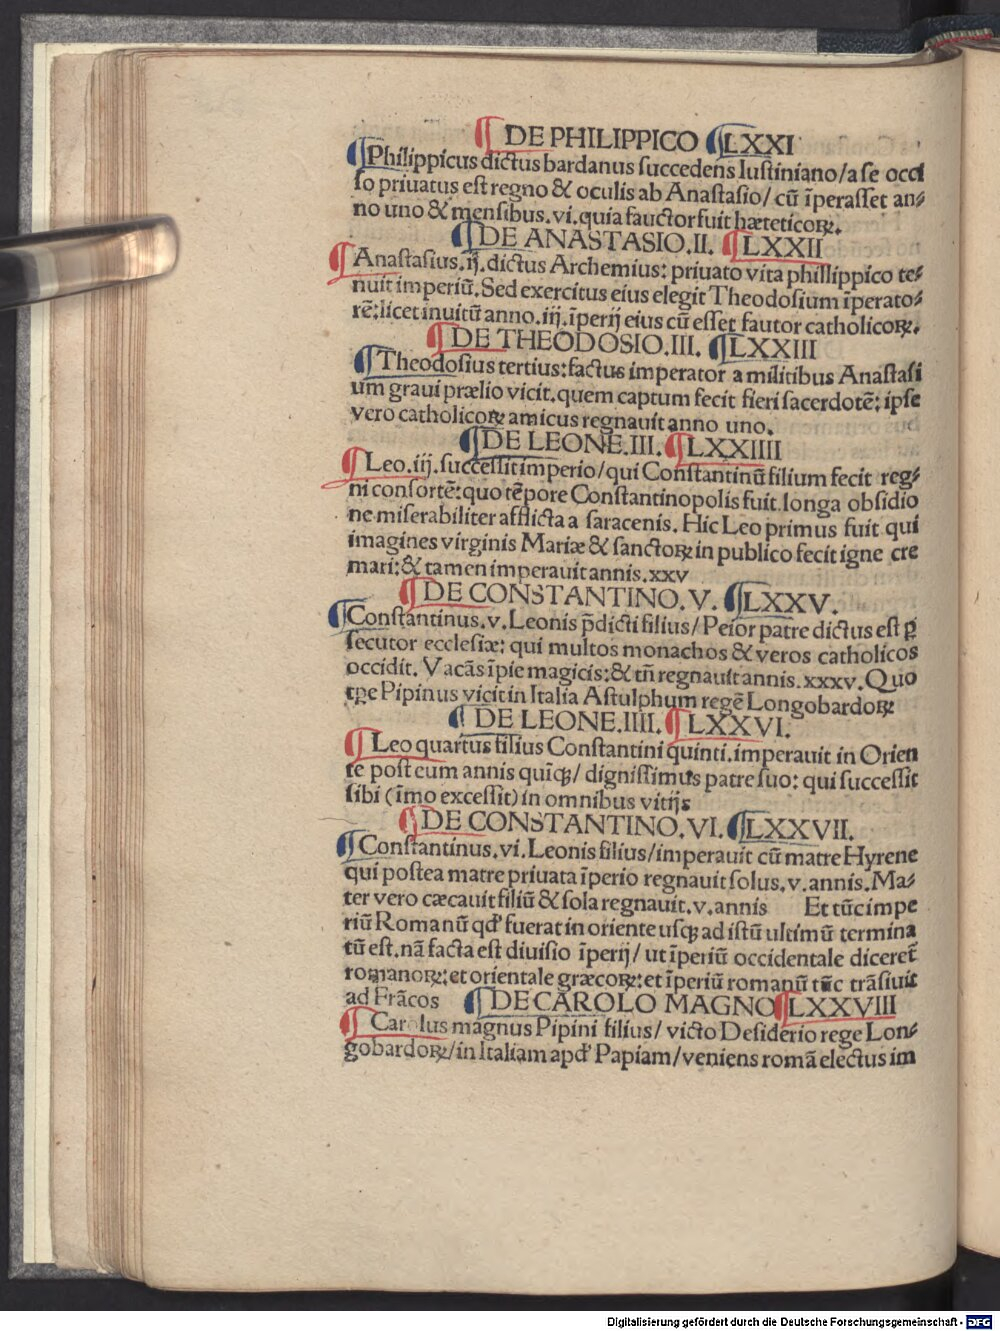 ¶ DE PHILIPPICO ¶ LXXI
¶ Philippicus dictus bardanus ſuccedens Iuſtiniano/a ſe occi
ſo priuatus eſt regno & oculis ab Anaſtaſio/ cū īperaſſet an⸗
no uno & menſibus.vi.quia fauctor fuit hæteticoꝝ.
¶ DE ANASTASIO.II. ¶ LXXII
¶ Anaſtaſius.ij.dictus Archemius: priuato vita phillippico te⸗
nuit imperiū.Sed exercitus eius elegit Theodoſium īperato⸗
rē:licet inuitū anno.iij.īperij eius cū eſſet fautor catholicoꝝ.
¶ DE THEODOSIO.III. ¶ LXXIII
¶ Theodoſius tertius:factus imperator a militibus Anaſtaſi
um graui prælio vicit.quem captum fecit fieri ſacerdotē: ipſe
vero catholicoꝝ amicus regnauit anno uno.
¶ DE LEONE.III. ¶ LXXIIII
¶ Leo.iij.ſucceſſit imperio/qui Conſtantinū filium fecit reg⸗
ni conſortē:quo tēpore Conſtantinopolis fuit longa obſidio
ne miſerabiliter afflicta a ſaracenis. Hic Leo primus fuit qui
imagines virginis Mariæ & ſanctoꝝ in publico fecit igne cre
mari:& tamen imperauit annis.xxv
¶ DE CONSTANTINO.V. ¶ LXXV.
¶ Conſtantinus.v.Leonis p̄dicti filius/Peior patre dictus eſt ꝑ
ſecutor eccleſiæ: qui multos monachos & veros catholicos
occidit. Vacās īpie magicis:& tn̄ regnauit annis.xxxv.Quo
tꝑe Pipinus vicit in Italia Aſtulphum regē Longobardoꝝ
¶ DE LEONE.IIII. ¶ LXXVI.
¶ Leo quartus filius Conſtantini quinti.imperauit in Orien
te poſt eum annis quīqꝫ/ digniſſimus patre ſuo: qui ſucceſſit
ſibi (īmo exceſſit) in omnibus vitijs
¶ DE CONSTANTINO.VI. ¶ LXXVII.
¶ Conſtantinus.vi.Leonis filius/imperauit cū matre Hyrene
qui poſtea matre priuata īperio regnauit ſolus.v.annis.Ma⸗
ter vero cæcauit filiū & ſola regnauit.v.annis Et tūc impe
riū Romanū qđ fuerat in oriente uſqꝫ ad iſtū ultimū termina
tū eſt.nā facta eſt diuiſio īperij/ ut īperiū occidentale diceret̄
romanoꝝ:et orientale græcoꝝ:et īperiū romanū tūc trāſiuit
ad Frācos ¶ DE CAROLO MAGNO ¶ LXXVIII
¶ Carolus magnus Pipini filius/ victo Deſiderio rege Lon⸗
gobardoꝝ/in Italiam apđ Papiam/veniens romā electus im
Digitalisierung gefördert durch die Deutsche Forschungsgemeinschaft - DFG